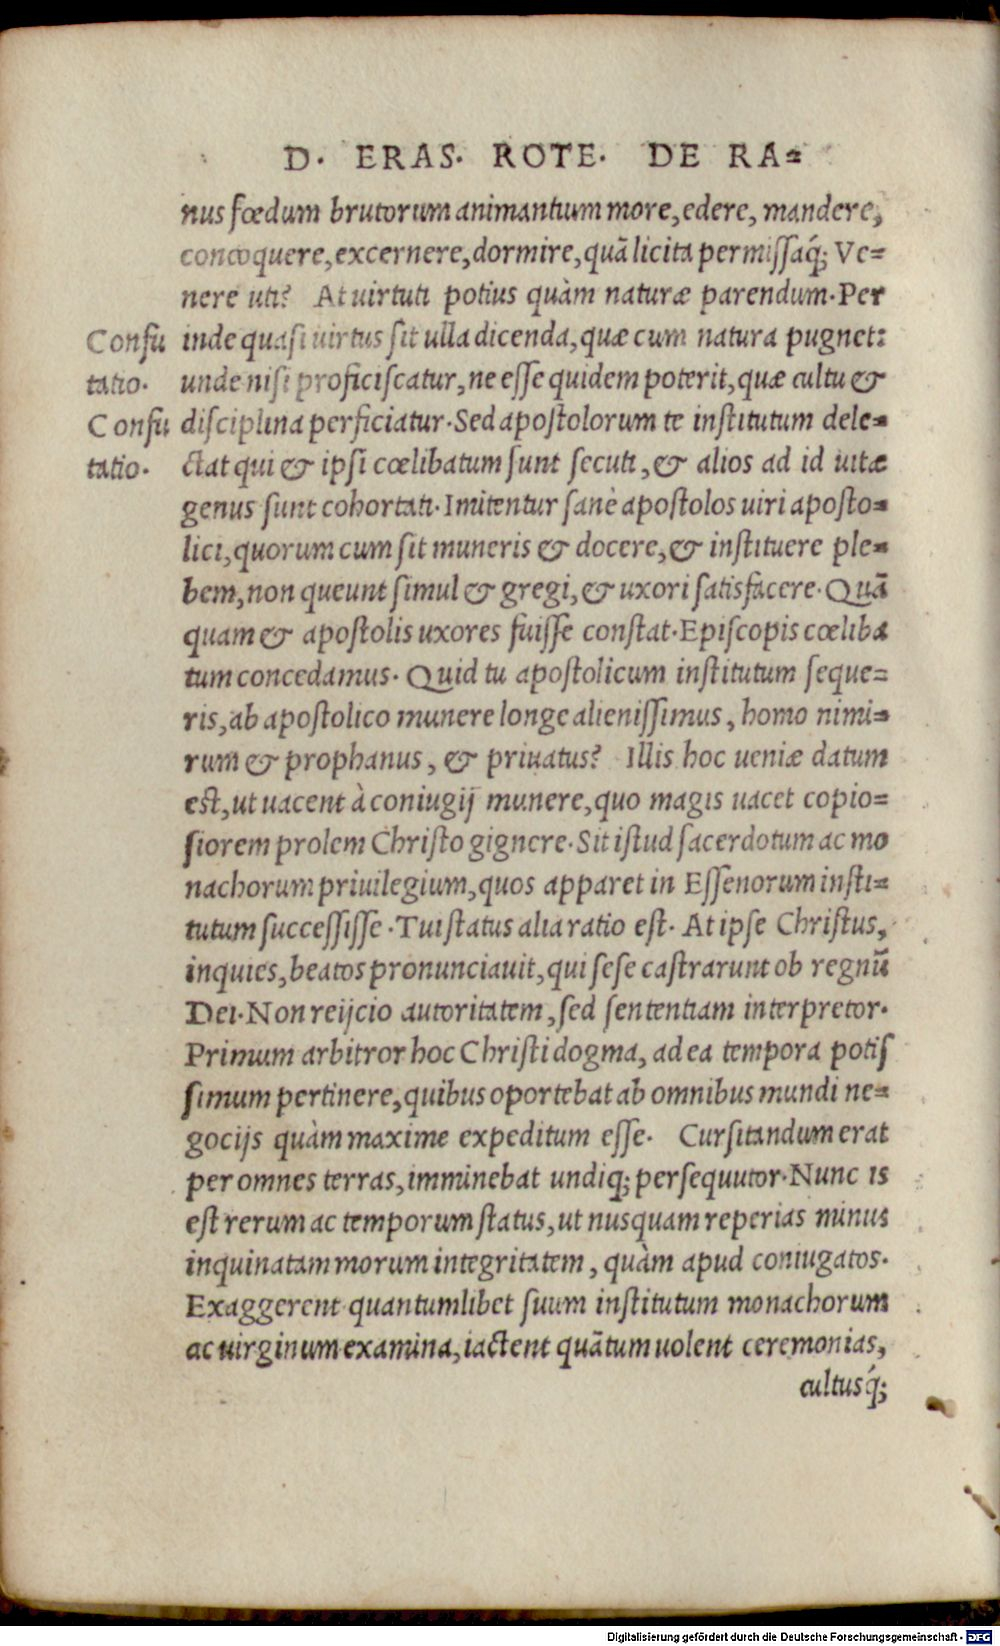 D. ERAS. ROTE. DE RA=
nus fœdum brutorum animantium more, edere, mandere,
concoquere, excernere, dormire, quã licita permissaq́; Ve=
nere uti? At uirtuti potius quàm naturæ parendum. Per
Confu
tatio.
inde quasi uirtus sit ulla dicenda, quæ cum natura pugnet:
unde nisi proficiscatur, ne esse quidem poterit, quæ cultu &
Confu
tatio.
disciplina perficiatur. Sed apostolorum te institutum dele=
ctat qui & ipsi cœlibatum sunt secuti, & alios ad id uitæ
genus sunt cohortati. Imitentur sanè apostolos uiri aposto=
lici, quorum cum sit muneris & docere, & instituere ple=
bem, non queunt simul & gregi, & uxori satisfacere. Quã
quam & apostolis uxores fuisse constat. Episcopis cœliba
tum concedamus. Quid tu apostolicum institutum seque=
ris, ab apostolico munere longe alienissimus, homo nimi=
rum & prophanus, & priuatus? Illis hoc ueniæ datum
est, ut uacent à coniugij munere, quo magis uacet copio=
siorem prolem Christo gignere. Sit istud sacerdotum ac mo
nachorum priuilegium, quos apparet in Essenorum insti=
tutum successisse. Tui status alia ratio est. At ipse Christus,
inquies, beatos pronunciauit, qui sese castrarunt ob regnũ
Dei. Non reijcio autoritatem, sed sententiam interpretor.
Primum arbitror hoc Christi dogma, ad ea tempora potis
simum pertinere, quibus oportebat ab omnibus mundi ne=
gocijs quàm maxime expeditum esse. Cursitandum erat
per omnes terras, imminebat undiq; persequutor. Nunc is
est rerum ac temporum status, ut nusquam reperias minus
inquinatam morum integritatem, quàm apud coniugatos.
Exaggerent quantumlibet suum institutum monachorum
ac uirginum examina, iactent quãtum uolent ceremonias,
cultusq́;
Digitalisierung gefördert durch die Deutsche Forschungsgemeinschaft - DFG